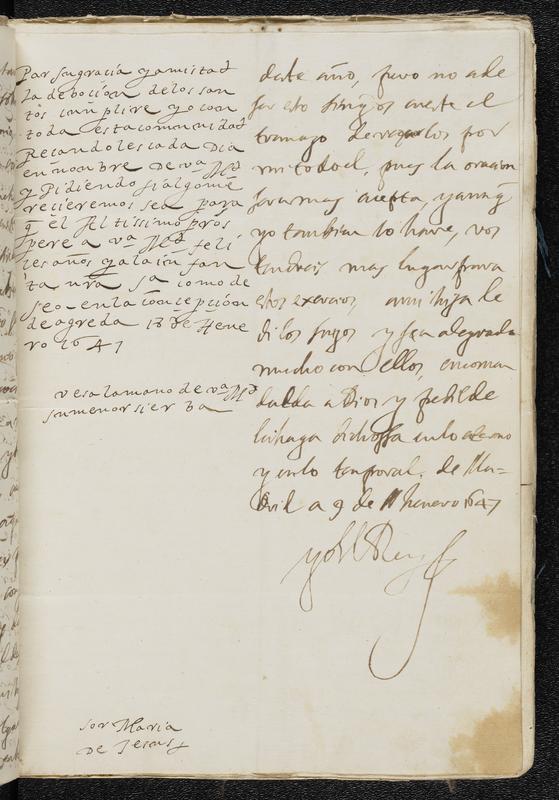 Por su gracia y amistad
la deboçion de los san
tos cunplire yo con
toda esta comunidad
Reçandoles cada Dia
en nonbre de va Md
y Pidiendo si algo me
reçieremos sea para
q el Altissimo pros
pere a va Md feli
çes años y a la in fan
ta nra sa como de
seo. en la conçepçion
de agreda 18 de Hene
ro 1647
vesa la mano de va Md
su menor sierba
sor Maria
de Jesus
deste año, pero no a de
ser esto sino os cueste el
trauajo de reçarlos por
mi todo el, pues la oracion
sera mas acepta, y aunq
yo tambien lo hare, vos
tendreis mas lugar para
estos exercicios, a mi hija le
di los suyos y se a alegrado
mucho con ellos, encomen
dalda a Dios y pedilde
la haga dichossa en lo eterno
y en lo temporal. de Ma-
drid a 9 de Henero 1647
yo el Rey